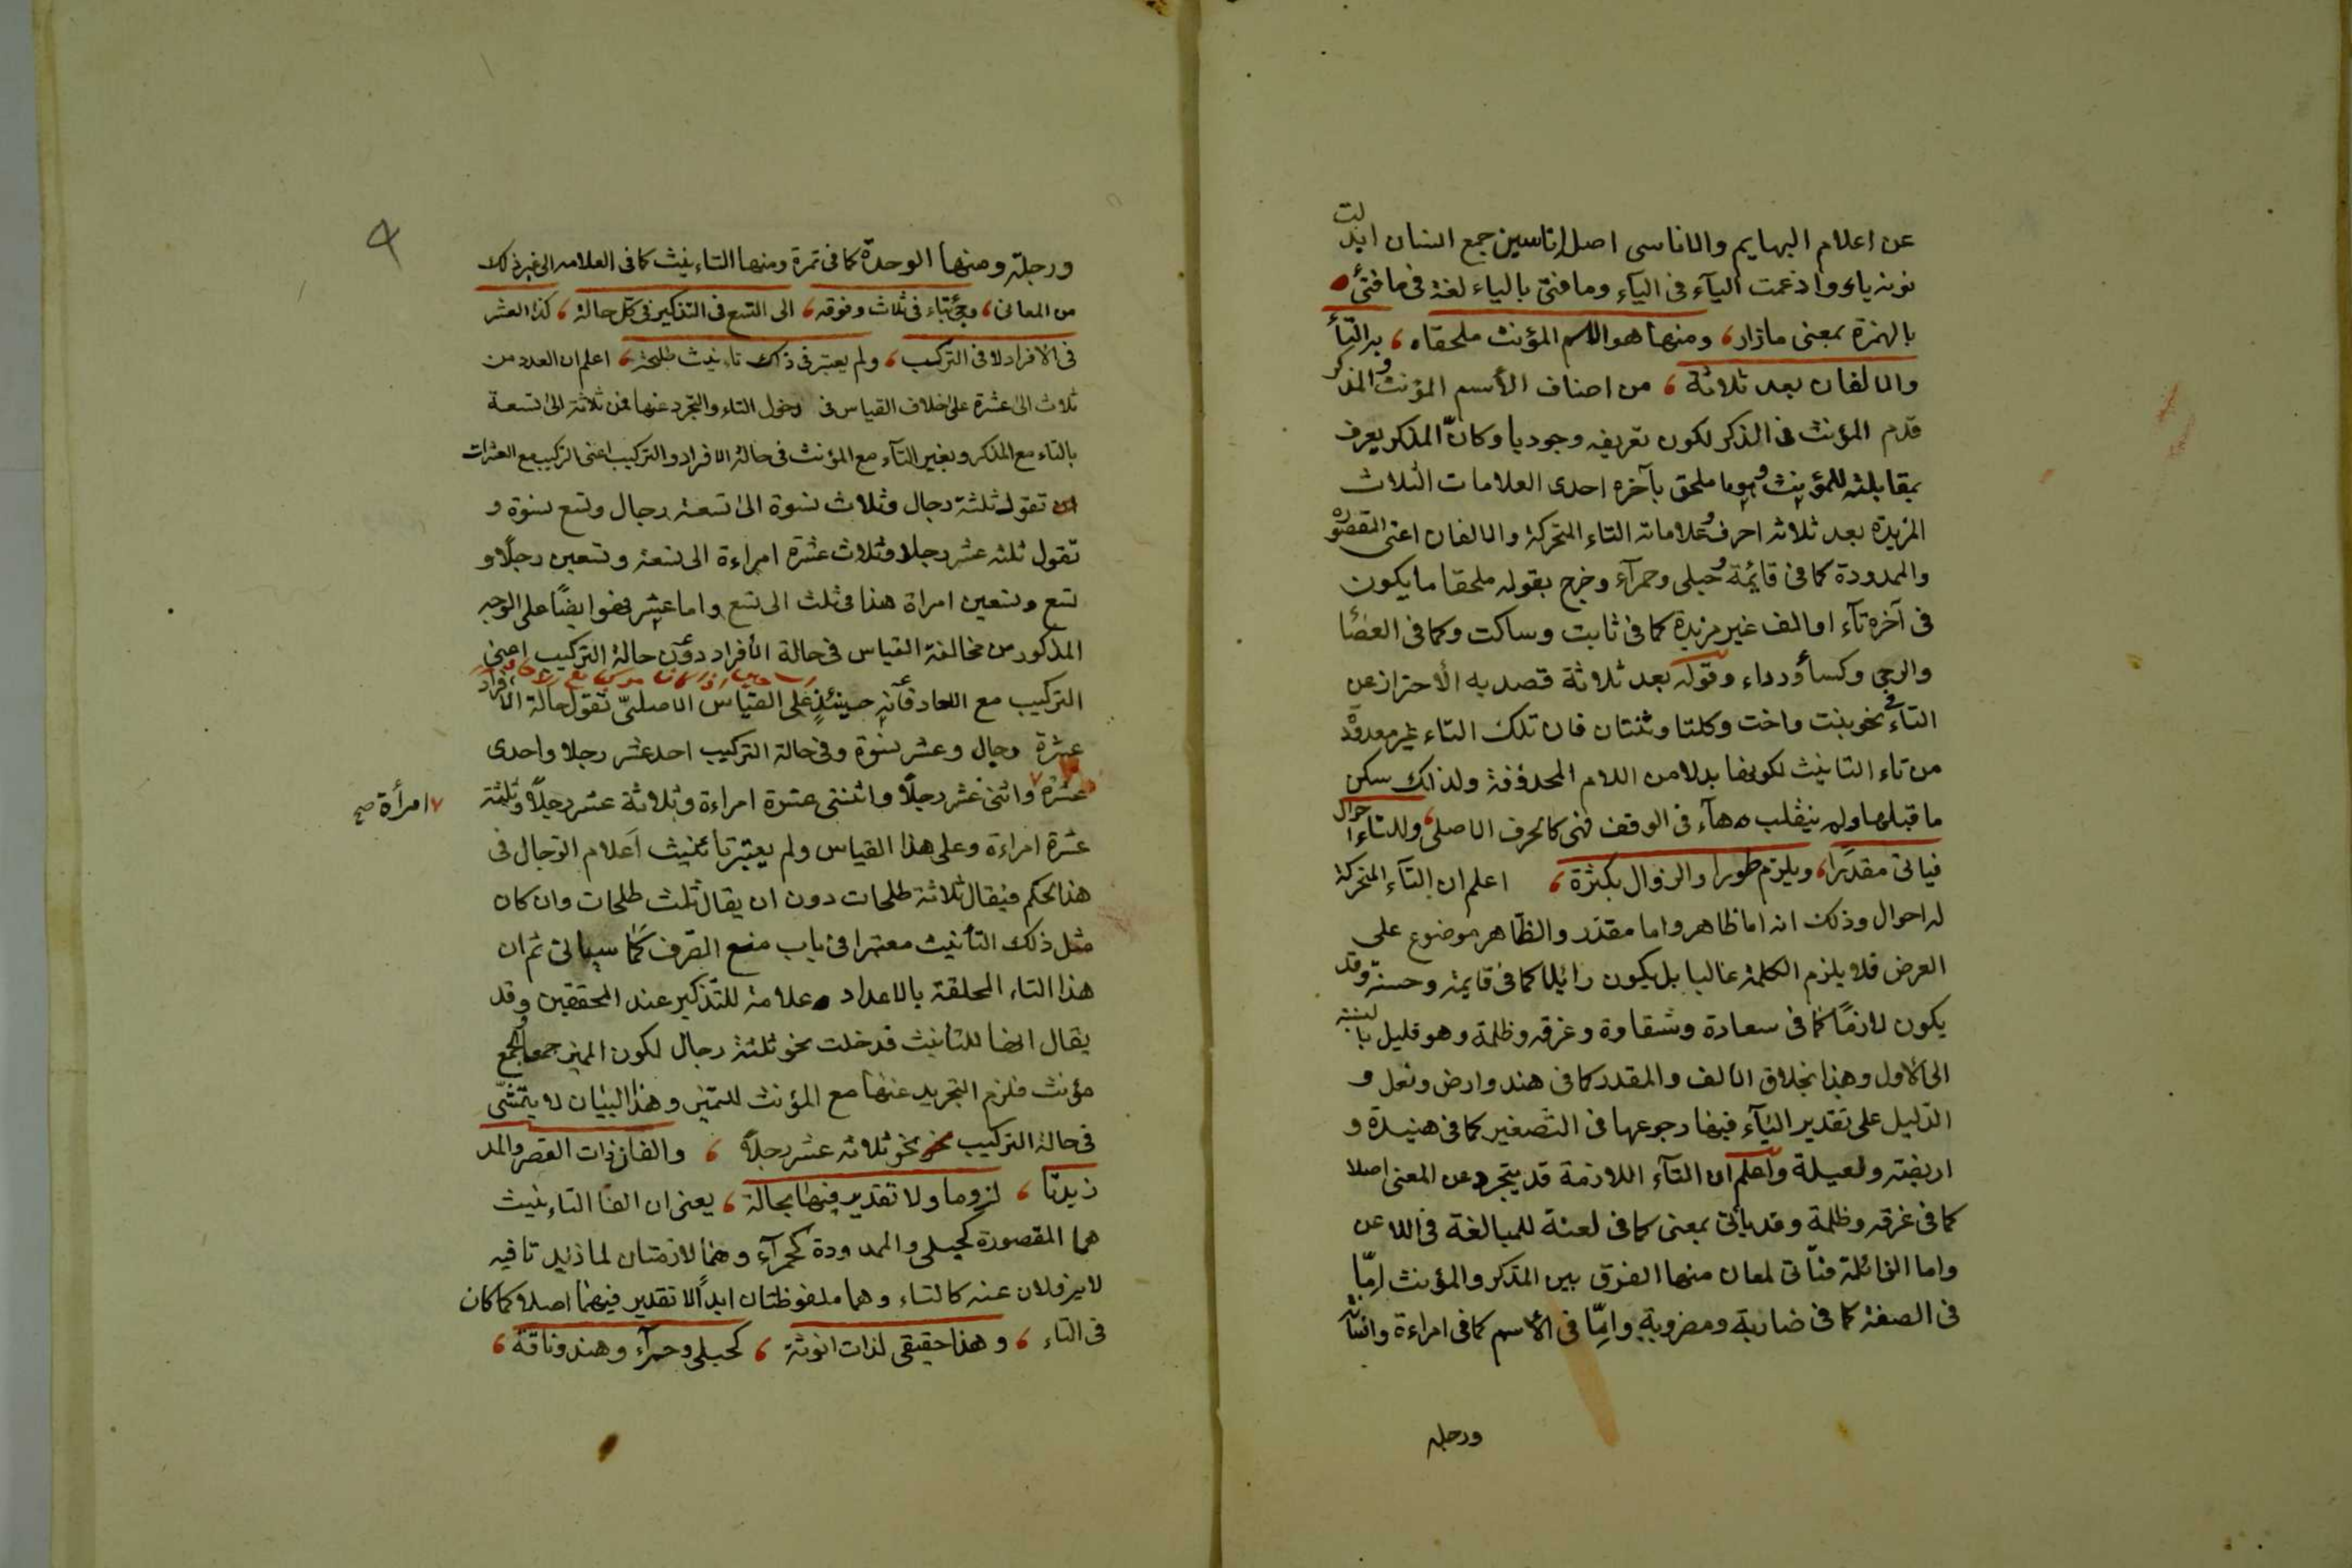 عن اعلام البهايم والاناسى اصل اناسين جمع انسان ابدلت
نونه ياء وادغمت الياء فى الياء وما فتى بالياء لغة فى ما فتئ
بالهمزة بمعنى مازال ومنها هو الاسم المؤنث ملحقاه بر التا
والالفان بعد ثلاثة من اصناف الأسم المؤنث والمذكر
قدم المؤنث فى الذكر لكون تعريفه وجوديا وكان المذكر يعرف
بمقابلته للمؤنث وهو ما ملحق بآخره احدى العلامات الثلاث
المزيدة بعد ثلاثه احرف وعلاماته التاء المتحركة والالفان اعنى المقصورة
والممدودة كما فى قائمة وحبلى وحمرآء وخرج بقوله ملحقا ما يكون
فى آخره تآء او الف غير مزيدة كما فى ثابت وساكت وكما فى العصا
والرحى وكساء ورداء وقوله بعد ثلاثة قصد به الأحتراز عن
التاء فى نحو بنت واخت وكلتا وثنتان فان تلك التاء غير معدودة
من تاء التانيث لكونها بدلا من اللام المحذوفة ولذلك سكن
ما قبلها ولم ينقلب هآء فى الوقف فهى كالحرف الاصلى وللتاء احوال
فياتى مقدرا ويلزم طورا والزوال بكثرة اعلم ان التآء المتحركة
له احوال وذلك انه اما ظاهر واما مقدر والظاهر موضوع على
العرض فلا يلزم الكلمة غالبا بل يكون زائلا كما فى قايمة وحسنة وقد
يكون لازما كما فى سعادة وشقاوة وغرفه وظلمة وهو قليل بالنسبة
الى الأول وهذا بخلاف الالف والمقدر كما فى هند وارض ونعل و
الدليل على تقدير التآء فيها رجوعها فى التصغير كما فى هنيدة و
اريضه ونعيلة واعلم ان التآء اللازمة قد يتجرد عن المعنى اصلا
كما فى غرفه وظلمة وقد ياتى بمعنى كما فى لعنة للمبالغة فى اللاعن
واما الزائلة فتاتى لمعان منها الفرق بين المذكر والمؤنث امّا
فى الصفة كما فى ضاربة ومضروبة وامّا فى الأسم كما فى امراءة وانسانة
ورجله
ورجلة ومنها الوحدة كما فى تمرة ومنها التاءنيث كما فى العلامه الى غير ذلك
من المعانى وجئ بتاء فى ثلاث وفوقه الى التسع فى التذكير فى كل حالة كذا العشر
فى الافراد لا فى التركيب ولم يعتبر فى ذاك تاءنيث طلحة اعلم ان العدد من
ثلاث الى عشرة على خلاف القياس فى دخول التاء والتجرد عنها فمن ثلاثة الى تسعة
بالتاء مع المذكر وبغير التآء مع المؤنث فى حالة الافراد والتركيب اعنى التركيب مع العشرات
تقول ثلثة رجال وثلاث نسوة الى تسعة رجال وتسع نسوة و
تقول ثلثه عشر رجلا وثلاث عشرة امراءة الى تسعة وتسعين رجلا و
تسع وتسعين امراة هذا فى ثلث الى تسع واما عشر فهو ايضا على الوجه
المذكور من مخالفة القياس فى حالة الأفراد دون حالة التركيب اعنى
التركيب مع الاحاد فانه حينئذ على القياس الاصلىّ تقول حالة الافراد
عشرة رجال وعشر نسوة وفى حالة التركيب احد عشر رجلا واحدى
عشرة ٧ واثنى عشر رجلا واثنتى عشرة امراءة وثلاثة عشر رجلا وثلثة
٧ امرأة صح
عشرة امراءة وعلى هذا القياس ولم يعتبر تأنيث اعلام الرجال فى
هذا الحكم فيقال ثلاثة طلحات دون ان يقال ثلث طلحات وان كان
مثل ذلك التأنيث معتبرا فى باب منع الصرف كما سياتى ثم ان
هذا التاء الملحقة بالاعداد علامة للتذكير عند المحققين وقد
يقال انها للتأنيث قد خلت نحو ثلثة رجال لكون المميز جمعا والجمع
مؤنث فلزم التجريد عنها مع المؤنث للتميز وهذا البيان لا يتمشى
فى حالة التركيب نحو ثلاثه عشر رجلا والفان ذات القصر والمد
زيدتا لزوما ولا تقدير فيهما بحالة يعنى ان الفا التاءنيث
هما المقصورة كحبلى والممدودة كحمرآء وهما لازمتان لما زيدتا فيه
لا يزولان عنه كالتاء وهما ملفوظتان ابدا لا تقدير فيهما اصلا كما كان
فى التاء وهذا حقيقى لذات انوثة كحبلى وحمرآء وهند وناقة